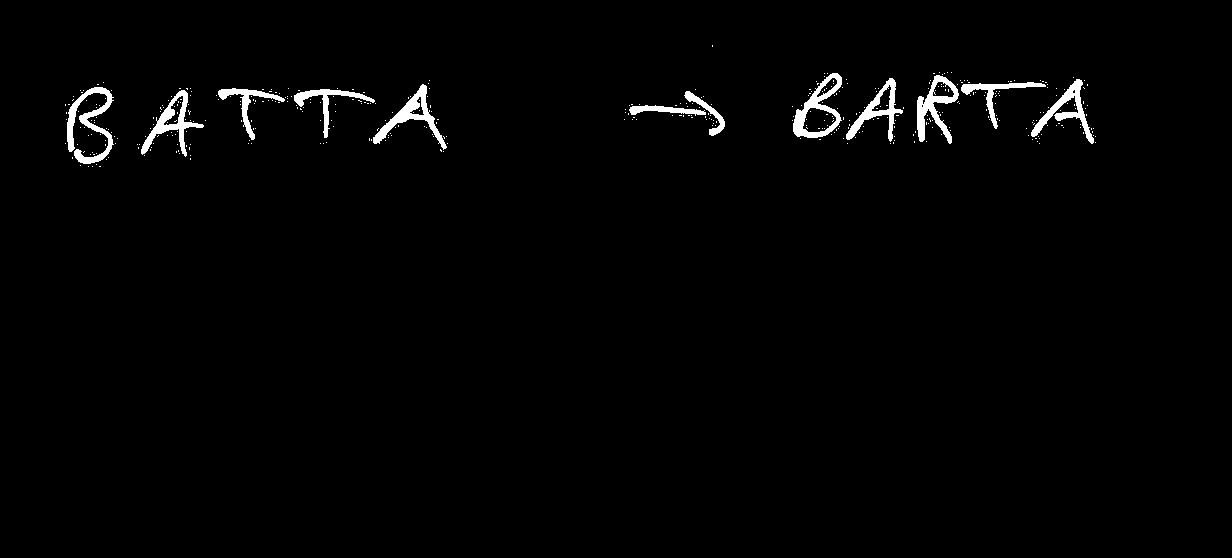 BATTA → BARTA